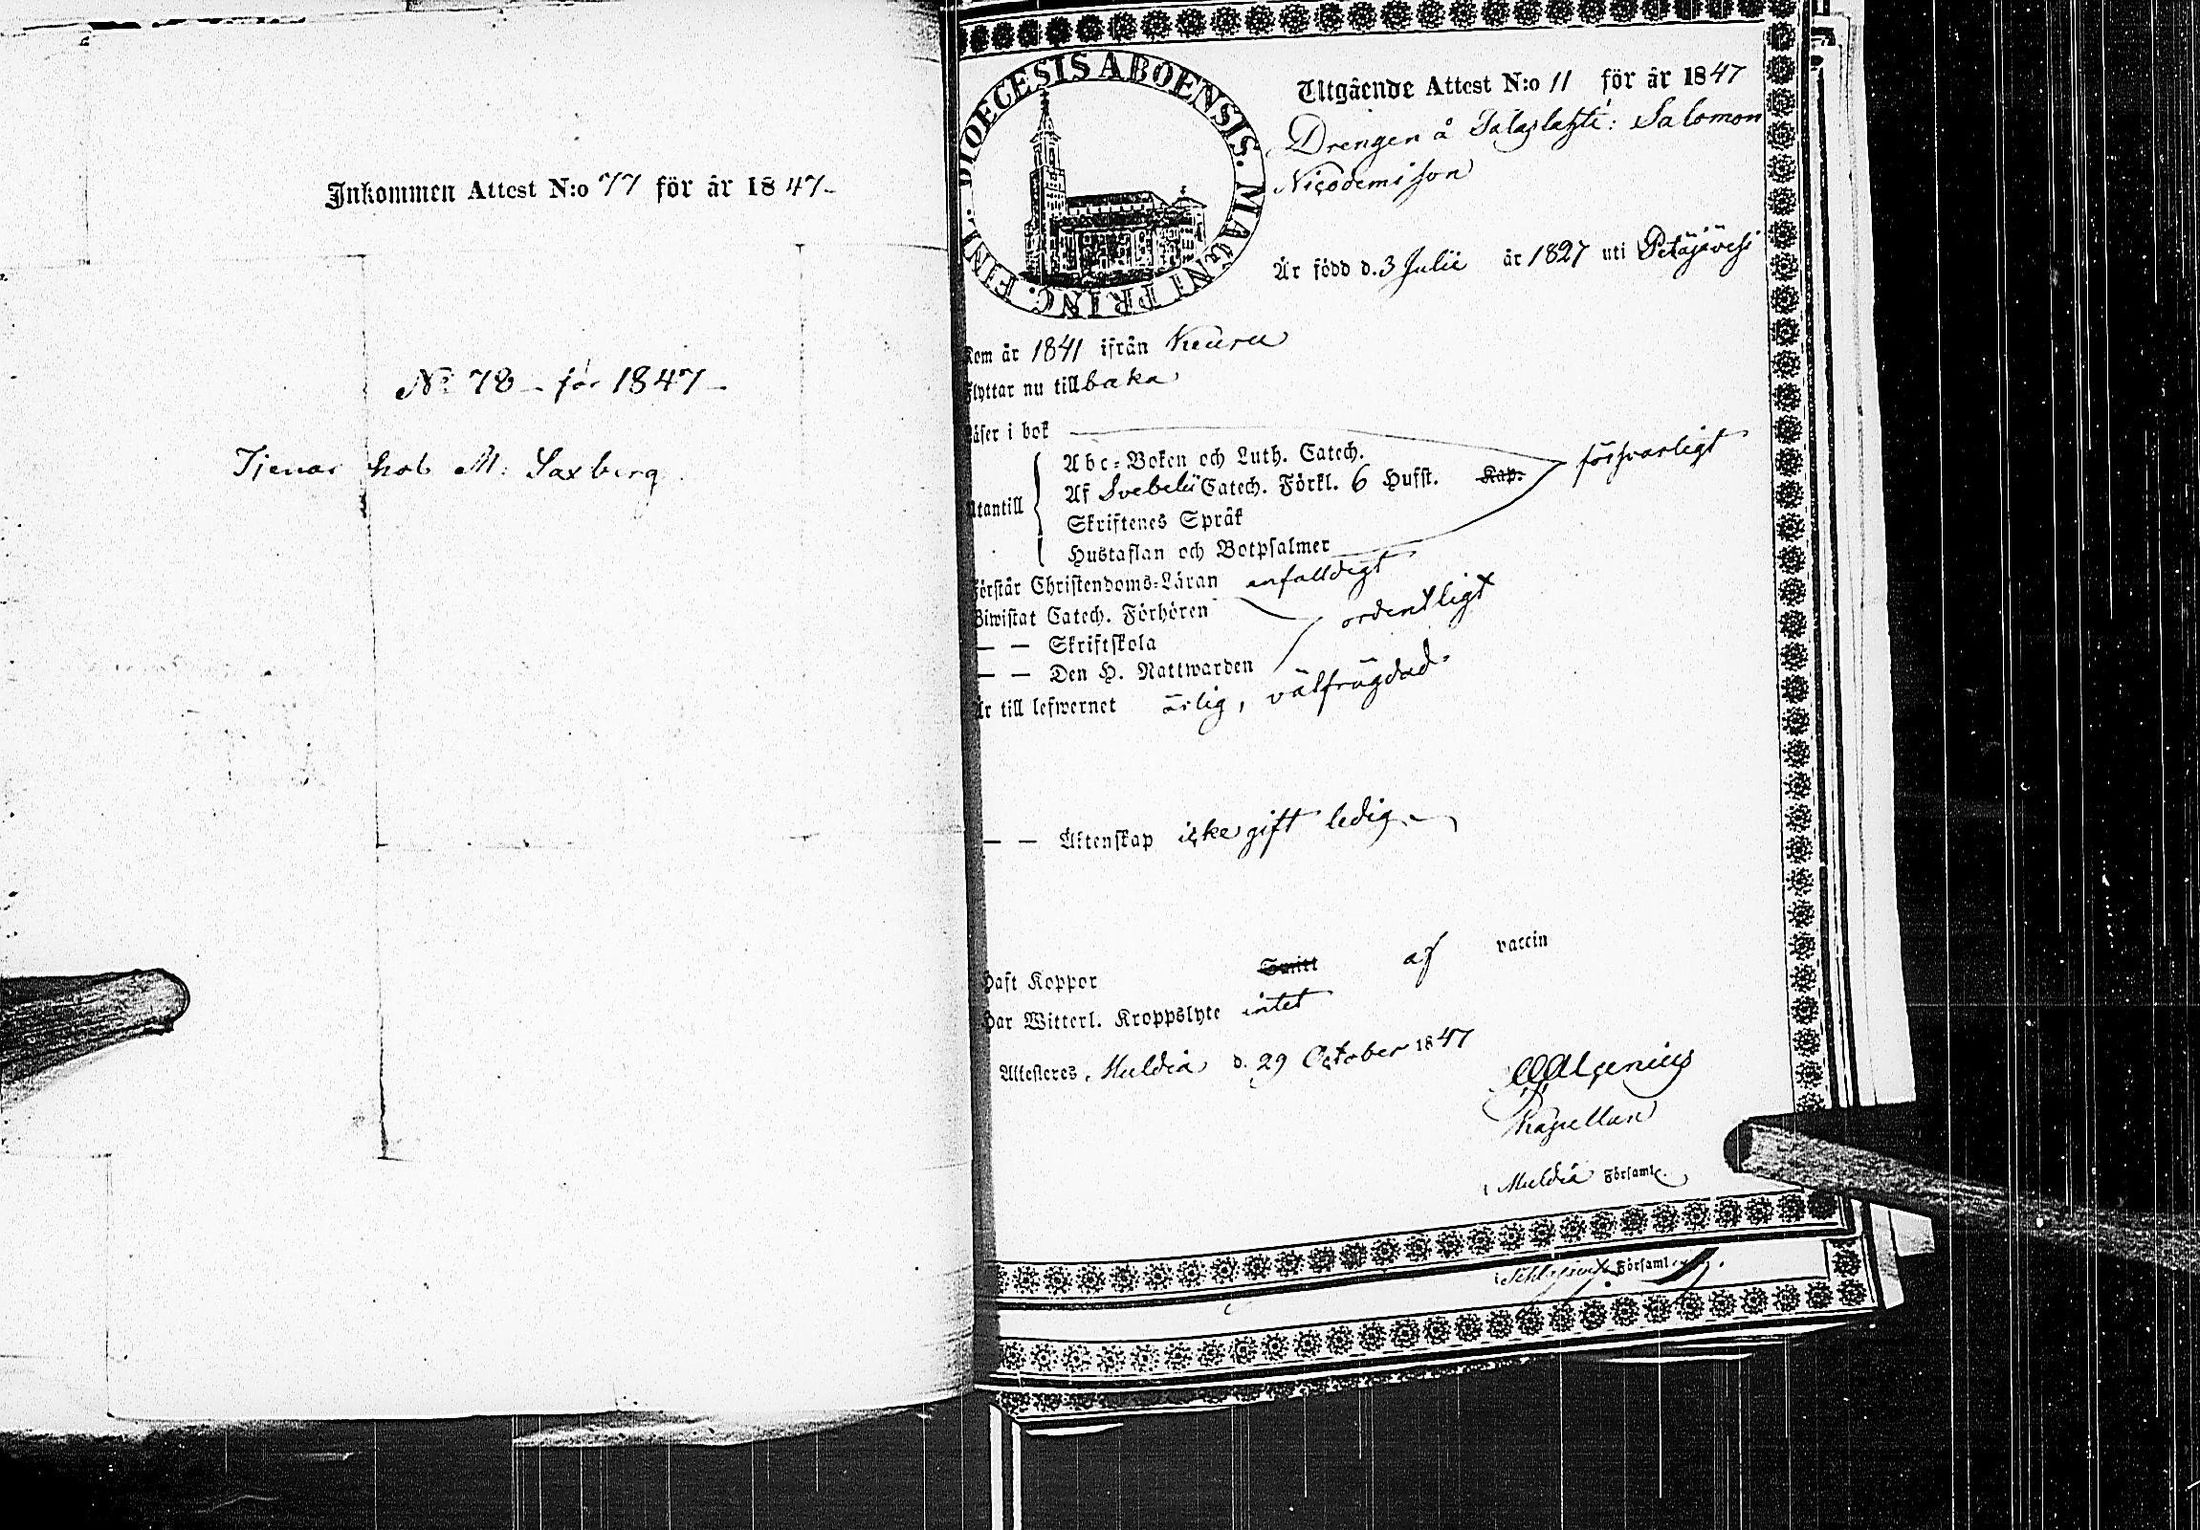 Inkommen Attest N:o 77 för år 1847-
No 78 - för 1847-
Tjenar hos M: Saxberg
DIOECESIS ABOENSIS. MAGNI PRINC. FINL.
Utgående Attest N:o 11 för år 1847
Drengen å Salomon
Nicodemisson
Är född d. 3 Julii år 1827 uti Petäjävesi
Kom år 1841 ifrån Keuru
Flyttar nu tillbaka
Läser i bok
Abc-Boken och Luth. Catech.
Af Svebelii Catech. Förkl. 6 Hufst. Kap. försvarligt
Utantill
Skriftenes Språk
Hustaflan och Botpsalmer
Förstår Christendoms-Läran enfalldigt
Biwistat Catech. Förhören ordentligt
— — Skriftskola
— — Den H. Nattwarden
Är till lefwernet ärlig, välfrägdad.
— — Äktenskap icke gift ledig
Haft Koppor Smitt af vaccin
Har Witterl. Kroppslyte intet
Attesteres, Muldia d. 29 October 1847
Kapellan
i Muldia Församl.
Församl